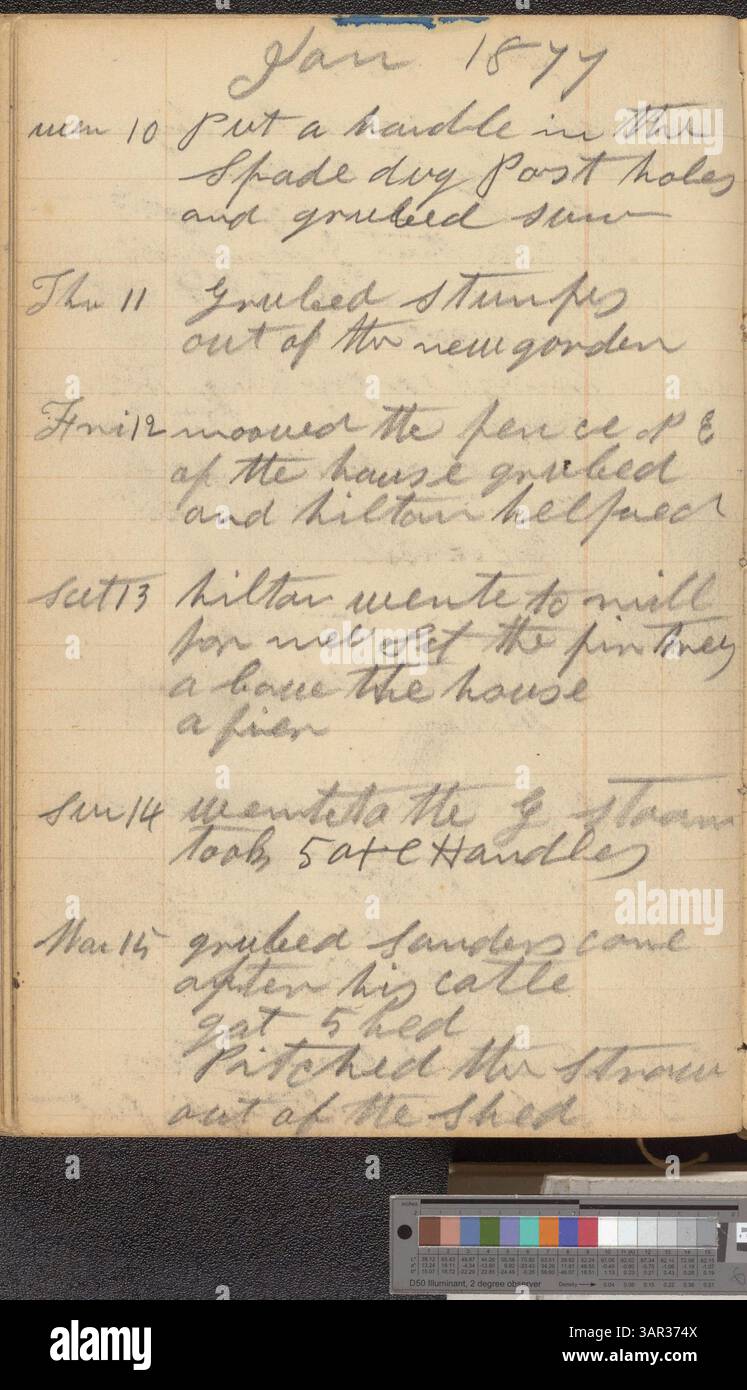 Jan 1877
wen 10 Put a handle in the
Spade dug Post holes
and grubed sum
Thu 11 Grubed stumps
out of the new gorden
Fri 12 mooved the fence N E
of the house grubed
and hilton helped
Sat 13 hilton wente to mill
for me Set the pin trey
a bove the house
a pier
Sun 14 wente to the G
took 5 axe Handles
Mon 15 grubed Sanders come
after his catle
gat 5 hed
Pitched the straw
out of the shed
alamy
alamy
Image ID: 3AR374X
www.alamy.com
D50 Illuminant, 2 degree observer
Density